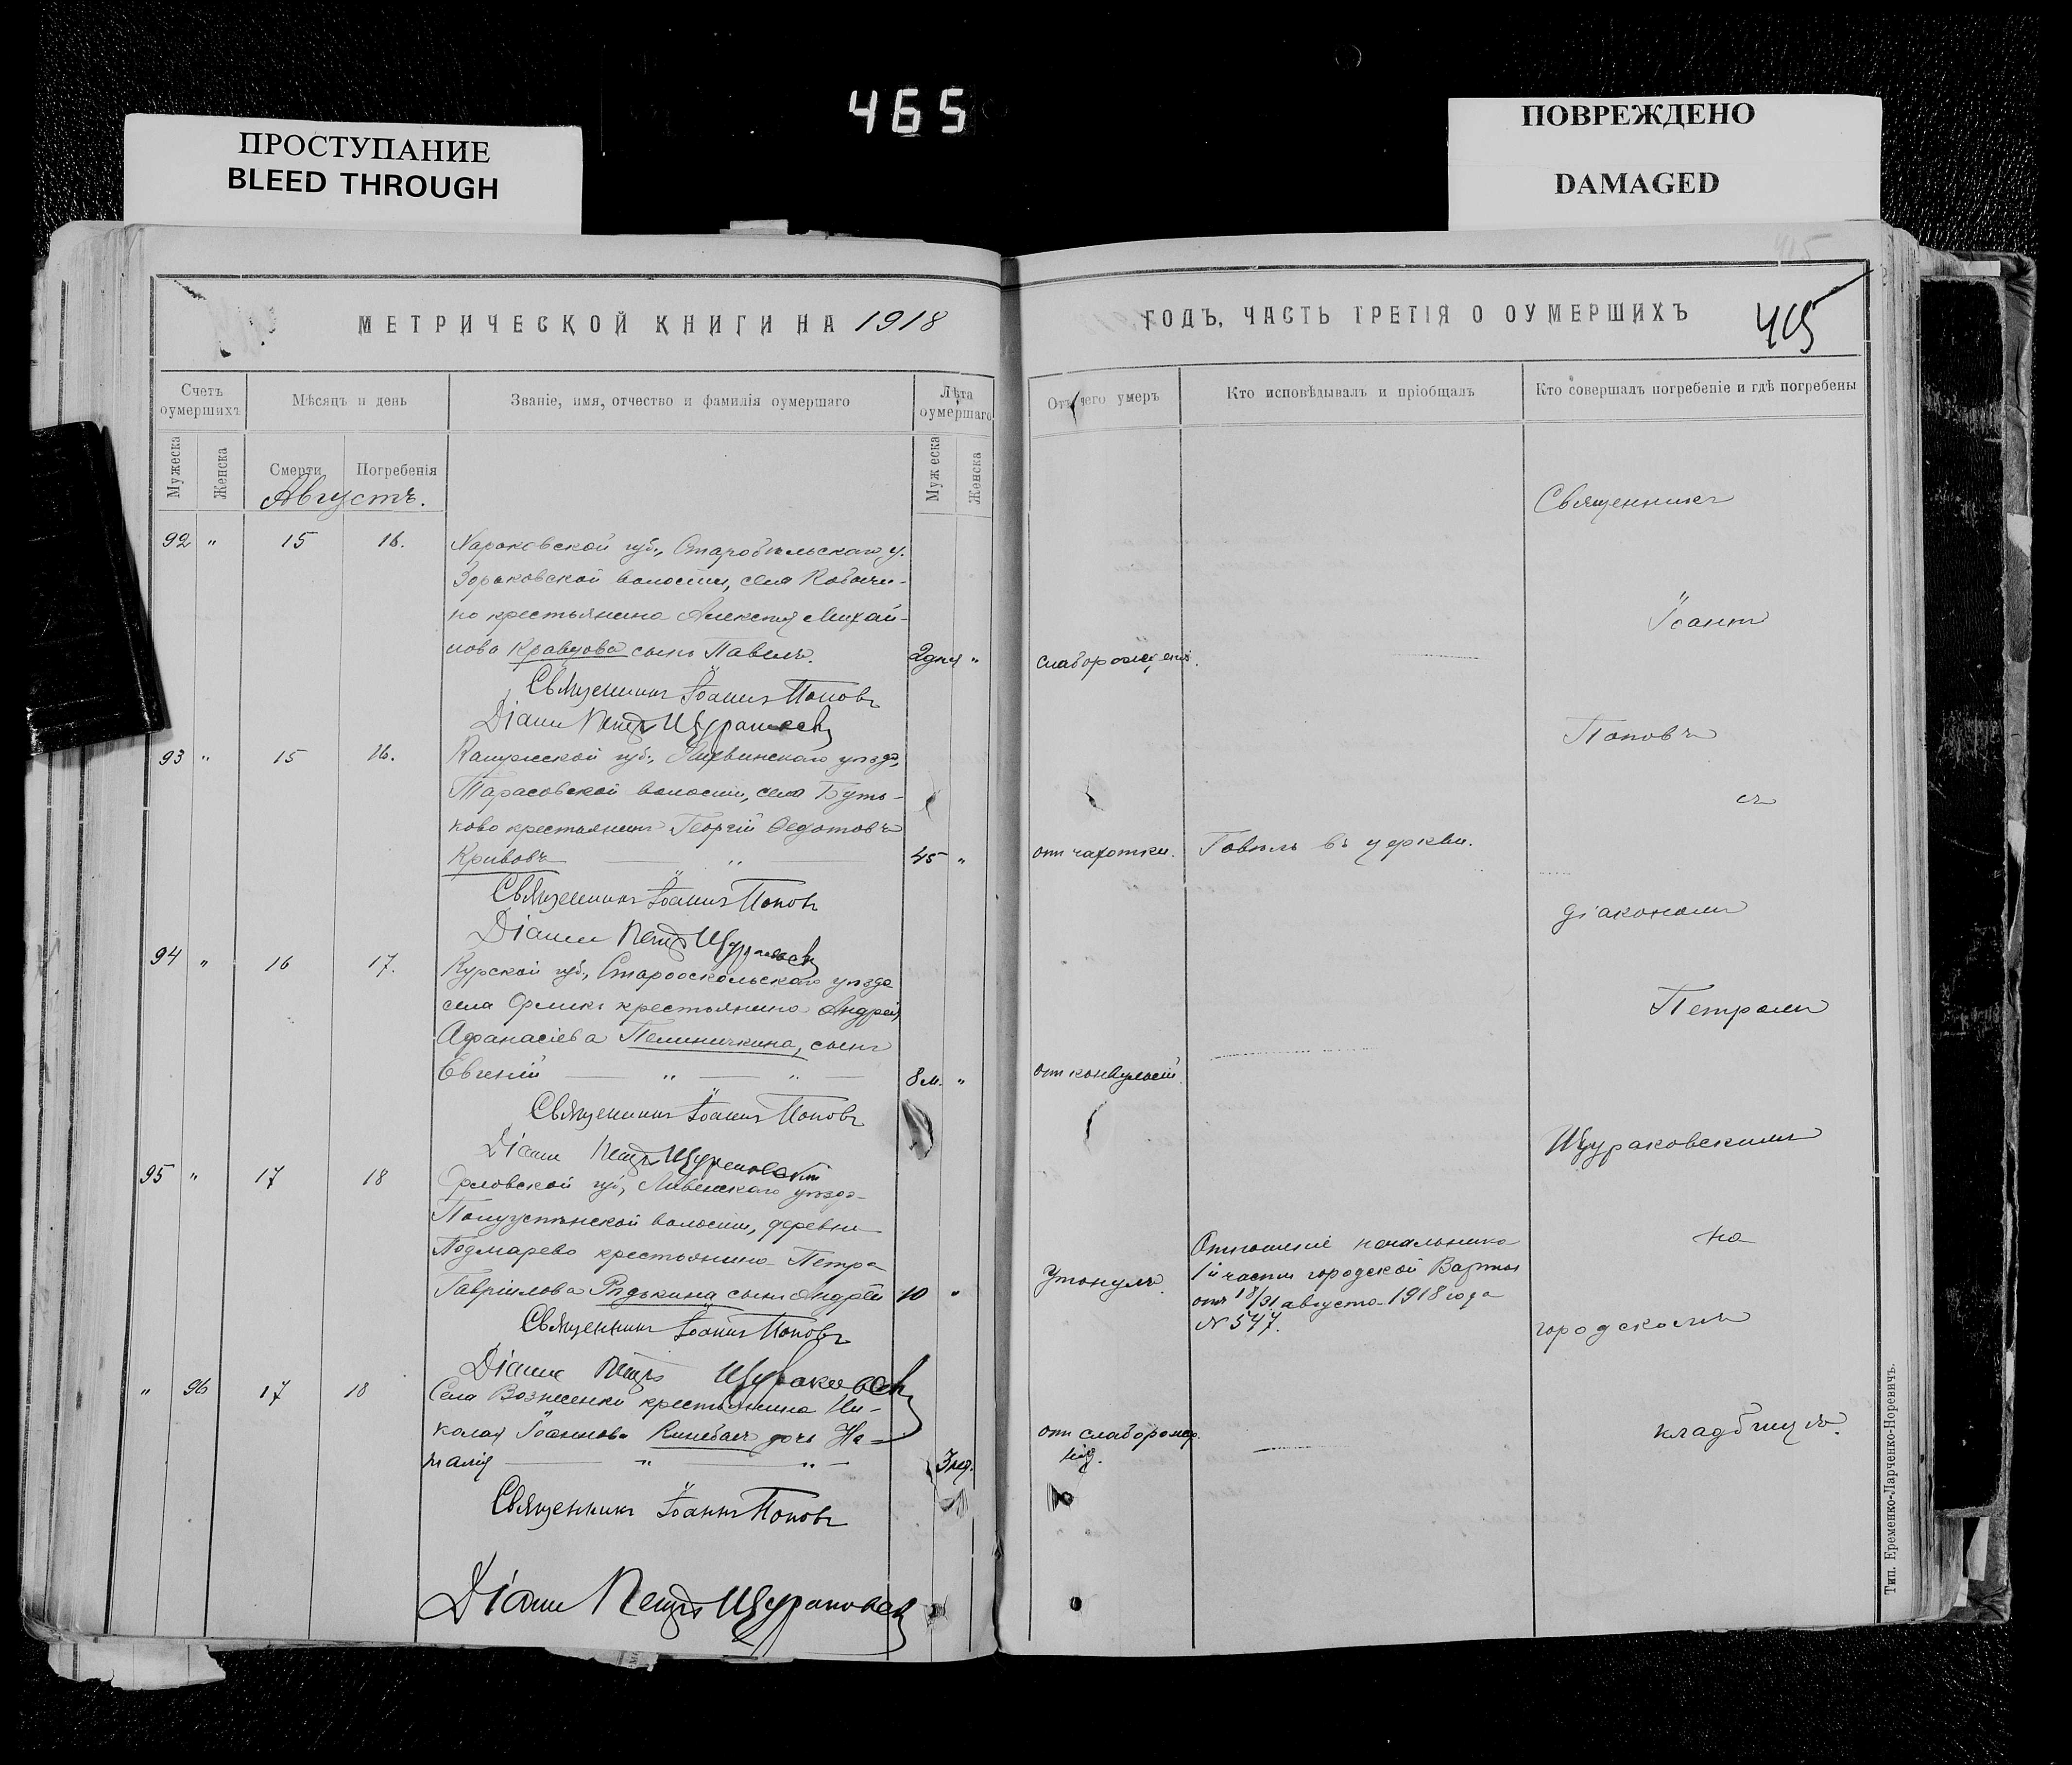 465
ПРОСТУПАНИЕ
BLEED THROUGH
ПОВРЕЖДЕНО
DAMAGED
МЕТРИЧЕСКОЙ КНИГИ НА 1918
Счетъ оумершихъ
Мѣсяцъ и день
Званіе, имя, отчество и фамилія оумершаго
Лѣта оумершаго
Мужеска
Женска
Смерти
Погребенія
Мужеска
Женска
Августъ.
92 " 15 16. Харьковской губ., Старобѣльскаго у.
волости, села
но крестьянина Алексѣя Михай-
лова Кравцова сынъ Павелъ. 2 дня "
Священникъ Іоаннъ Поповъ
Діаконъ Петръ Щураковскій
93 " 15 16. Калужской губ., Лихвинскаго уѣзда,
Тарасовской волости, села Буть-
ково крестьянинъ Георгій Федотовъ
Кривовъ " 45 "
Священникъ Іоаннъ Поповъ
Діаконъ Петръ Щураковскій
94 " 16 17. Курской губ., Старооскольскаго уѣзда
села Орликъ крестьянина Андрея
Афанасіева сынъ
Евгеній " " 8 м. "
Священникъ Іоаннъ Поповъ
Діаконъ Петръ Щураковскій
95 " 17 18 Орловской губ., Ливенскаго уѣзда
волости, деревни
крестьянина Петра
Гавріилова Рѣдькина сынъ Андрей 10 "
Священникъ Іоаннъ Поповъ
Діаконъ Петръ Щураковскій
" 96 17 18 Села Вознесенки крестьянина Ни-
колая Іоаннова дочь На-
талія " " 3 нед.
Священникъ Іоаннъ Поповъ
Діаконъ Петръ Щураковскій
ГОДЪ, ЧАСТЬ ТРЕТІЯ О ОУМЕРШИХЪ
405
Отъ чего умеръ
Кто исповѣдывалъ и пріобщалъ
Кто совершалъ погребеніе и гдѣ погребены
слаборожденія.
отъ чахотки. Говѣлъ въ церкви.
отъ конвульсій.
Утонулъ.
Отношеніе начальника
1й части городской Варты
отъ 18/31 августа 1918 года
№ 547.
отъ слаборожд.
нія.
Священникъ
Іоаннъ
Поповъ
съ
діакономъ
Петромъ
Щураковскимъ
на
городскомъ
кладбищѣ.
Тип. Еременко-Ларченко-Норевичъ.